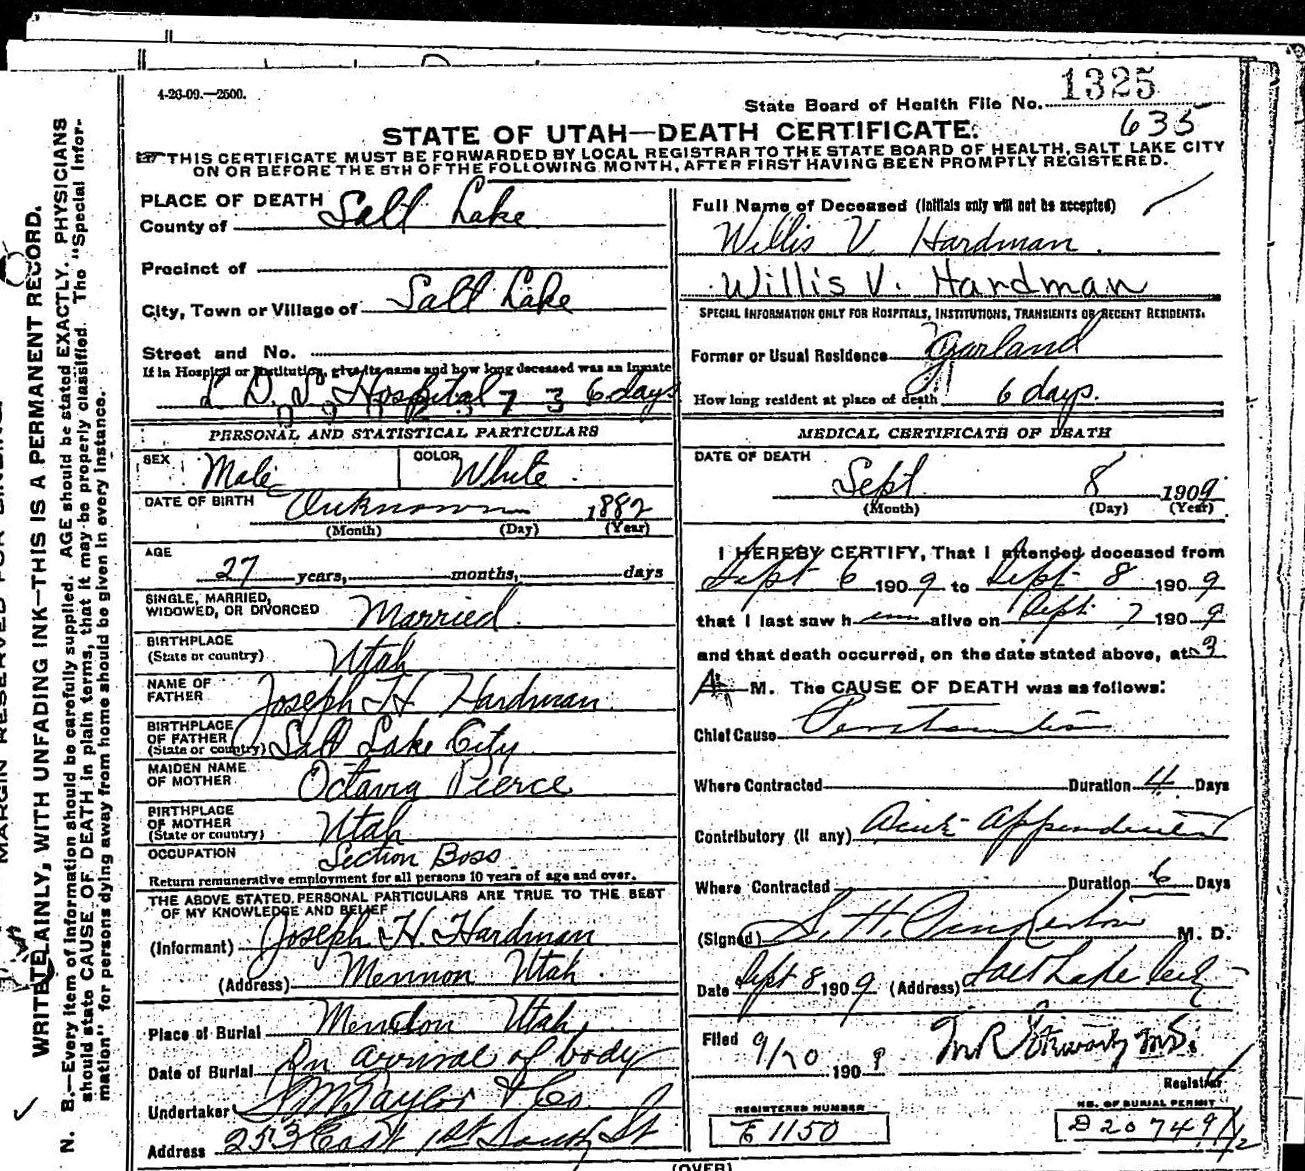 4-26-09.—2500.
1325
State Board of Health File No.
635
STATE OF UTAH—DEATH CERTIFICATE.
THIS CERTIFICATE MUST BE FORWARDED BY LOCAL REGISTRAR TO THE STATE BOARD OF HEALTH, SALT LAKE CITY
ON OR BEFORE THE 5TH OF THE FOLLOWING MONTH, AFTER FIRST HAVING BEEN PROMPTLY REGISTERED.
PLACE OF DEATH
County of Salt Lake
Precinct of
City, Town or Village of Salt Lake
Street and No.
If in Hospital or Institution, give its name and how long deceased was an Inmate
L. D. S. Hospital 6 days
PERSONAL AND STATISTICAL PARTICULARS
SEX Male COLOR White
DATE OF BIRTH Unknown 1882
(Month) (Day) (Year)
AGE
27 years, months, days
SINGLE, MARRIED,
WIDOWED, OR DIVORCED Married
BIRTHPLACE
(State or country) Utah
NAME OF
FATHER Joseph H Hardman
BIRTHPLACE
OF FATHER
(State or country) Salt Lake City
MAIDEN NAME
OF MOTHER Octavia Pierce
BIRTHPLACE
OF MOTHER
(State or country) Utah
OCCUPATION Section Boss
Return remunerative employment for all persons 10 years of age and over.
THE ABOVE STATED PERSONAL PARTICULARS ARE TRUE TO THE BEST
OF MY KNOWLEDGE AND BELIEF
(Informant) Joseph H. Hardman
(Address) Mennon Utah
Place of Burial Mendon Utah
Date of Burial On arrival of body
Undertaker S M Taylor & Co.
Address 253 East 1st South St
(OVER)
Full Name of Deceased (Initials only will not be accepted)
Willis V. Hardman.
Willis V. Hardman
SPECIAL INFORMATION ONLY FOR HOSPITALS, INSTITUTIONS, TRANSIENTS OR RECENT RESIDENTS.
Former or Usual Residence Garland
How long resident at place of death 6 days.
MEDICAL CERTIFICATE OF DEATH
DATE OF DEATH
Sept. 8 1909
(Month) (Day) (Year)
I HEREBY CERTIFY, That I attended deceased from
Sept 6 1909 to Sept 8 1909
that I last saw him alive on Sept. 7 1909
and that death occurred, on the date stated above, at 3
A. M. The CAUSE OF DEATH was as follows:
Chief Cause Peritonitis
Where Contracted Duration 4 Days
Contributory (if any) Acute Appendicitis
Where Contracted Duration 6 Days
(Signed) S. H. Pinkerton M. D.
Date Sept 8 1909 (Address) Salt Lake City
Filed 9/20 1909 M.D.
Registrar
REGISTERED NUMBER
E 1150
NO. OF BURIAL PERMIT
D 20749 1/2
MARGIN RESERVED FOR BINDING.
WRITE PLAINLY, WITH UNFADING INK—THIS IS A PERMANENT RECORD.
N. B.—Every item of information should be carefully supplied. AGE should be stated EXACTLY. PHYSICIANS
should state CAUSE OF DEATH in plain terms, that it may be properly classified. The "Special Infor-
mation" for persons dying away from home should be given in every instance.